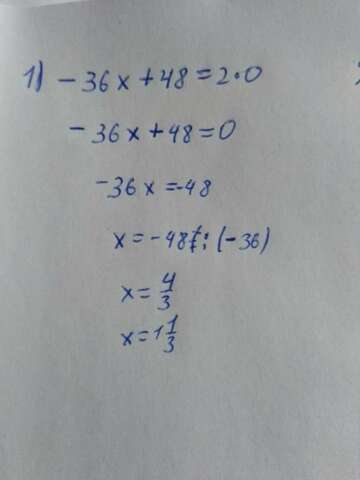 1) -36x+48=2·0
-36x+48=0
-36x=-48
x=-48:(-36)
x=4/3
x=1 1/3